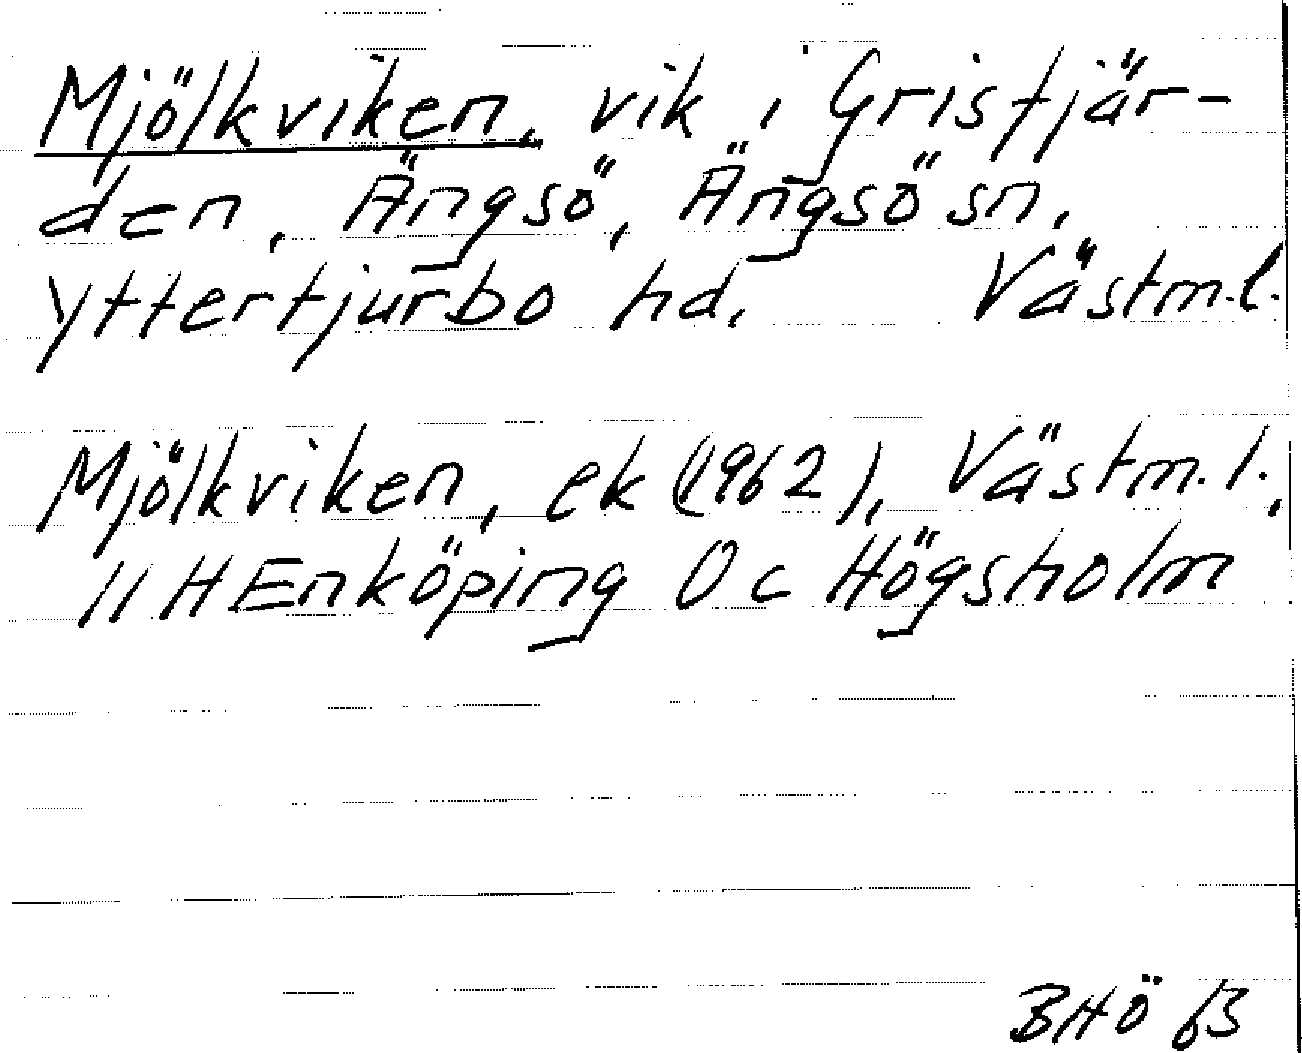 Mjölkviken, vik i Grisfjär-
den, Ängsö, Ängsö sn,
Yttertjurbo hd, Västm.l.
Mjölkviken, ek (1962), Västm.l.,
11 H Enköping 0 c Högsholm
BHÖ 63